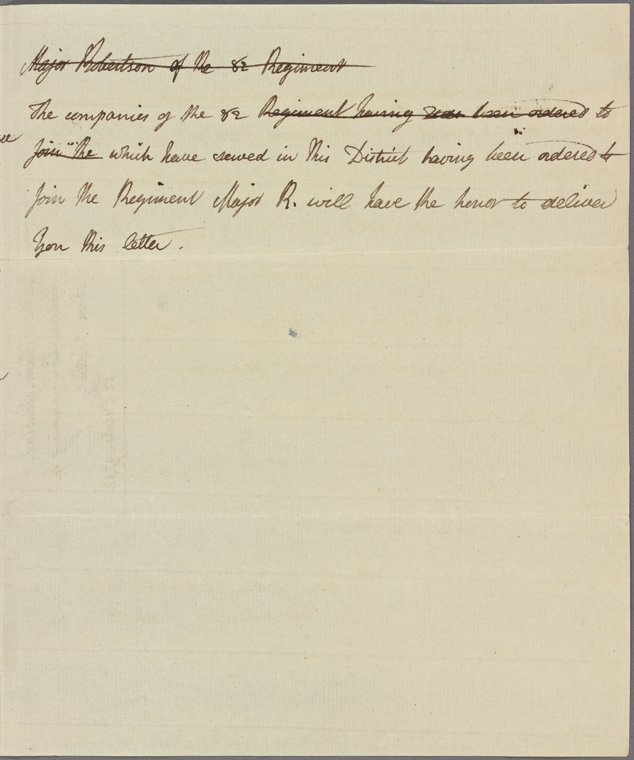 Major Robertson of the 82 Regiment
The companies of the 82 Regiment having been ordered to
join the which have served in this District having been ordered to
join the Regiment Major R. will have the honor to deliver
you this letter.